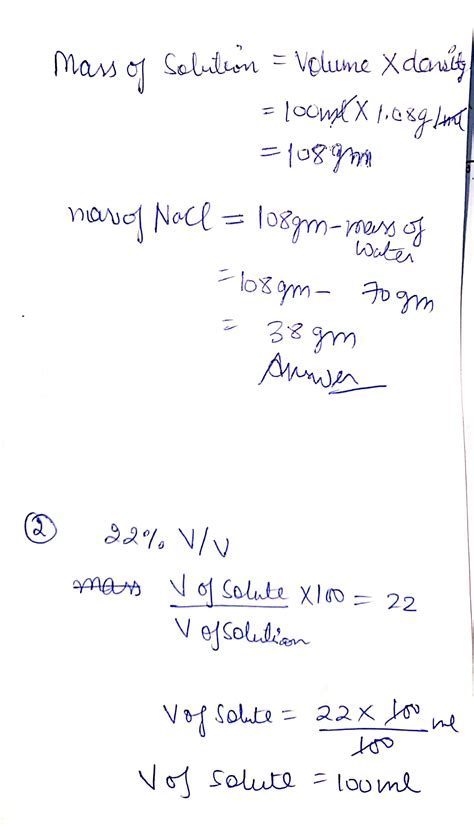 Mass of Solution = Volume X density
= 100ml X 1.08g/ml
= 108gm
mass of NaCl = 108gm - mass of
water
= 108gm - 70gm
= 38gm
Answer
② 22% V/V
mass V of Solute X100 = 22
V of Solution
V of Solute = 22 X 100 ml
100
V of Solute = 100ml